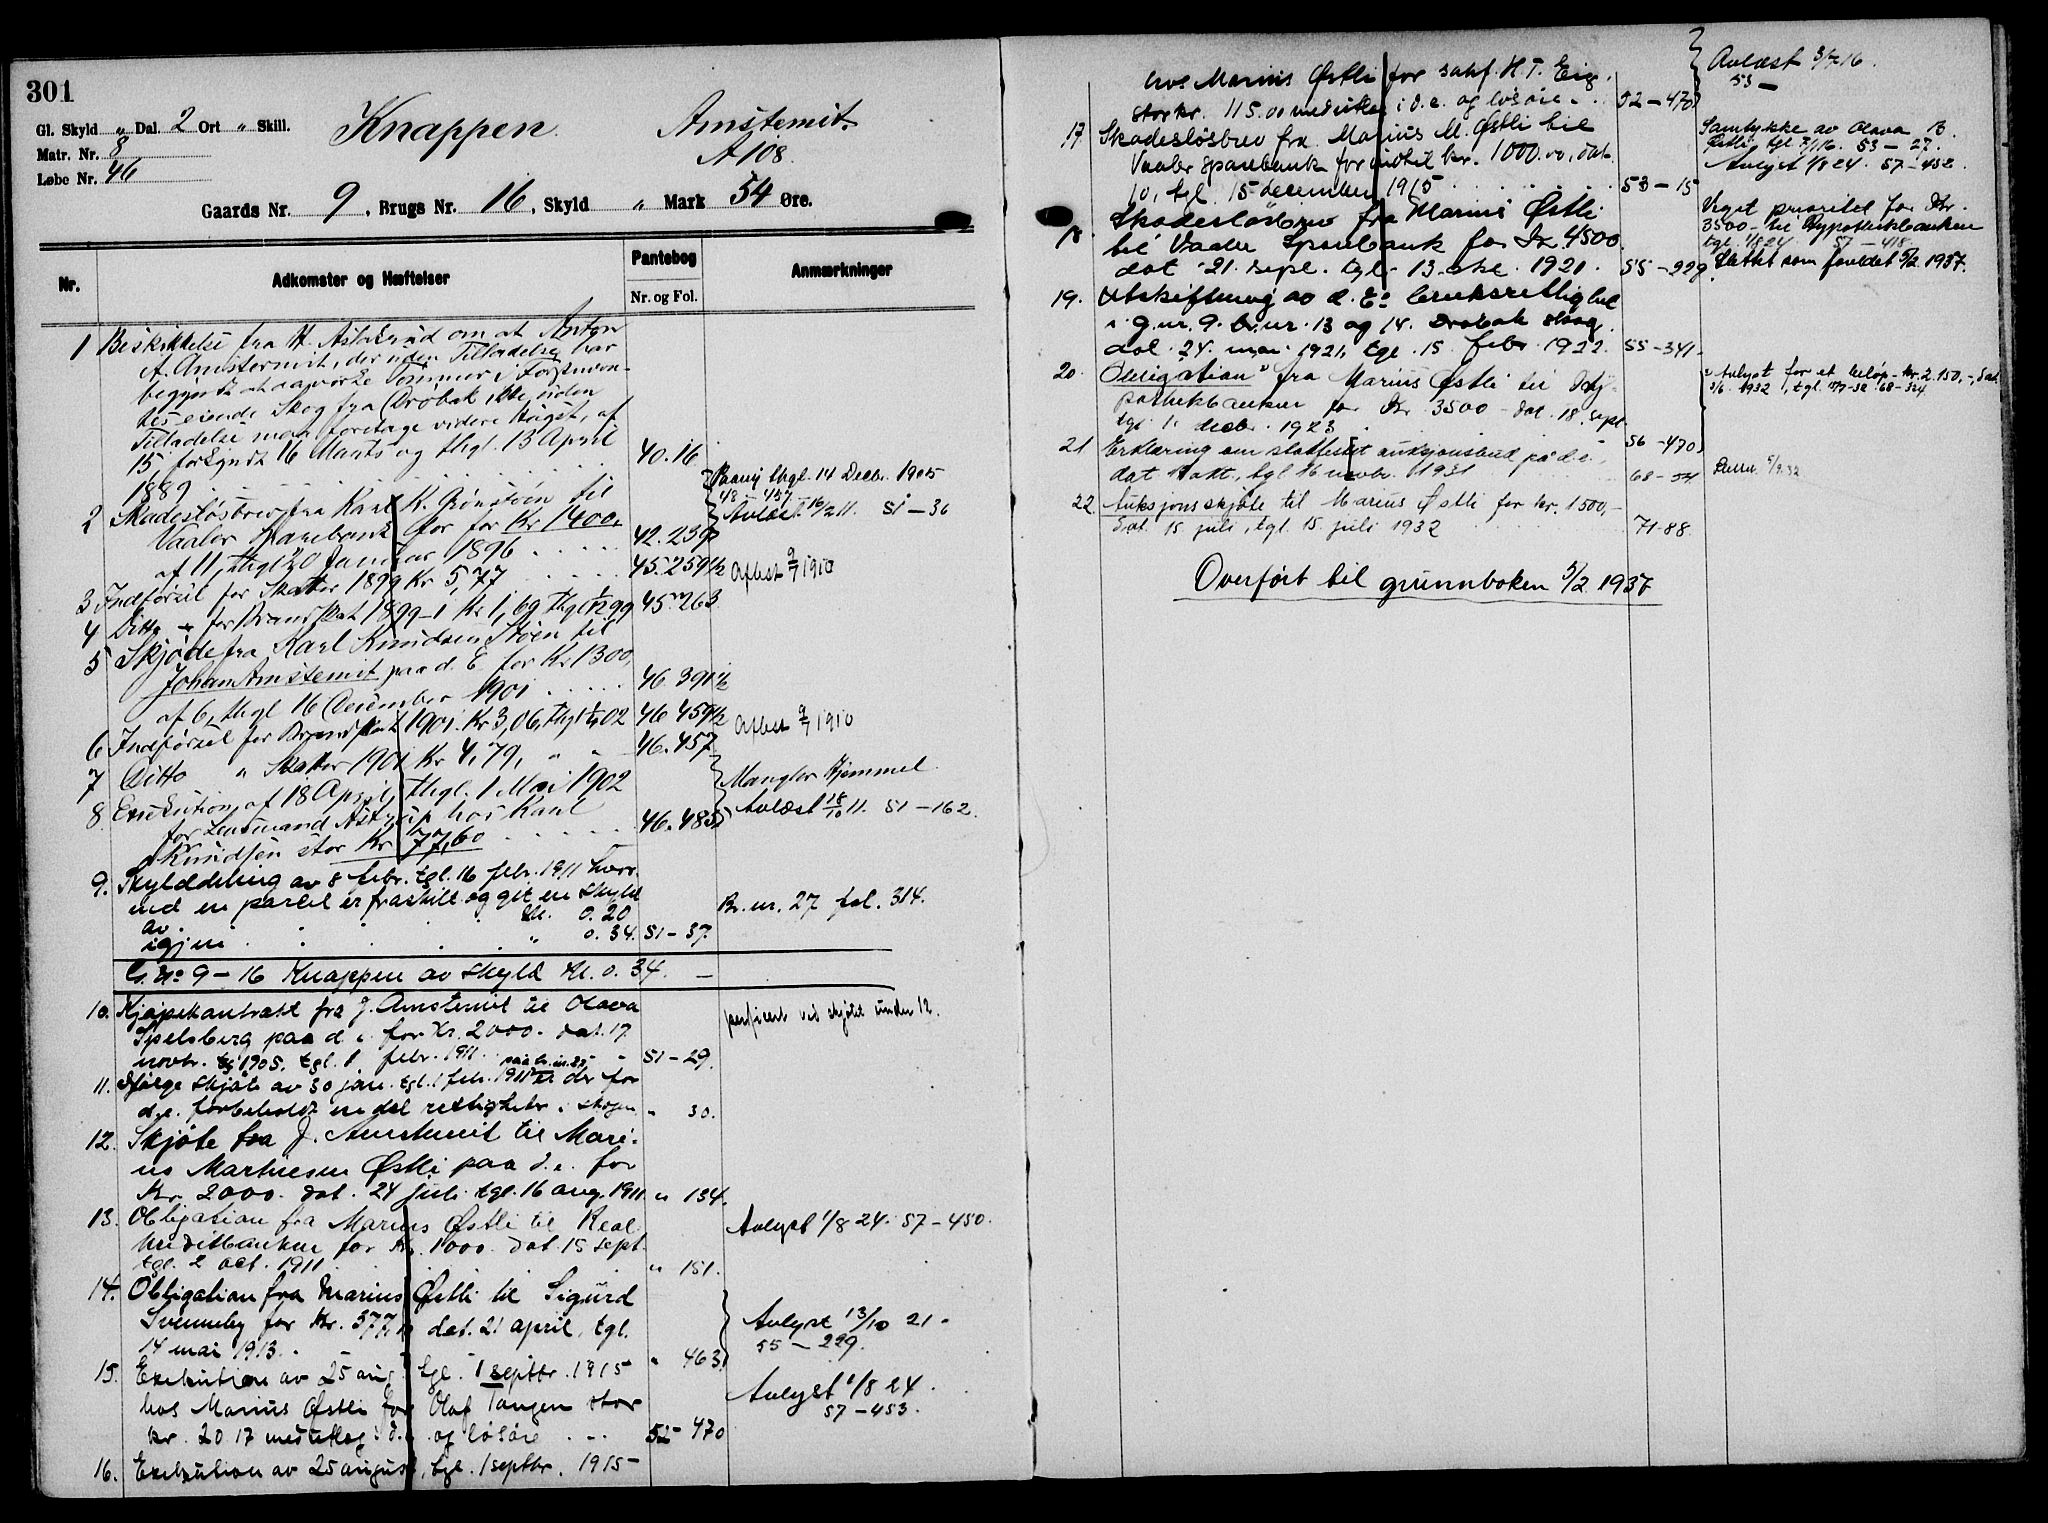 301
Gl. Skyld " Dal. 2 Ort " Skill.
Matr. Nr. 8
Løbe Nr. 46
Knappen.
Amstemit.
A 108.
Gaards Nr. 9, Brugs Nr. 16, Skyld " Mark 54 Øre.
Nr.
Adkomster og Hæftelser
Pantebog
Nr. og Fol.
Anmærkninger
1 Beskikkelse fra H. om at Anton
A. Amstemit, der uden Tilladelse har
begyndt at Tømmer i
Skog fra Drøbak ikke uden
Tilladelse maa foretage videre Hugst, af
15, forkyndt 16 Marts og thgl. 13 April
1889 40.16
2 Skadesløsbrev fra Karl K. Grønstøen til
Vaaler Sparebank for Kr 1400,
af 11, thgl 20 Januar 1896 42.239
Paany thgl. 14 Decbr. 1905
48 - 457
Avlæst 16/2 11. 51-36
3 Indførsel for Skatter 1899 Kr 5,77 45.259½
Aflæst 9/7 1910
4 Ditto for Brandskat 1899 1 Kr 1,69 thgl 99 45.263
5 Skjøde fra Karl Knudsen Støen til
Johan Amstemit paa d. E. for Kr 1300,
af 6, thgl 16 December 1901 46.391½
6 Indførsel for Brandskat 1901 Kr 3,06, thgl 02 46.459½
Aflæst 9/7 1910
7 Ditto " Skatter 1901 Kr 4,79, " " 46.457
8 Exekution af 18 April, thgl. 1 Mai 1902
for Lensmand Astrup hos Karl
Knudsen stor Kr 77,60 46.485
Mangler Hjemmel
Avlæst 18/10 11. 51-162
9. Skylddeling av 8 febr. tgl. 16 febr. 1911 hvor
ved en parcel er fraskilt og git en skyld
av M. 0.20
igjen " 0.34. 51-37.
Br. nr. 27 fol. 314.
G. No 9-16 Knappen av skyld M. 0.34.
10. Kjøpekontrakt fra J. Amstemit til Olava
Spelsberg paa d. e. for Kr. 2000. dat. 17
novbr. 1905, tgl. 1 febr. 1911 51-29.
perficert ved skjøte under 12.
11. Ifølge skjøte av 30 jan. tgl. 1 febr. 1911 paa br. nr. 27 er der for
d.e. forbeholdt en del rettigheter i skogen " 30.
12. Skjøte fra J. Amstemit til Mari-
us Martinsen Østli paa d. e. for
Kr. 2000. dat. 24 juli tgl. 16 aug. 1911 " 134.
13. Obligation fra Marius Østli til Real-
kreditbanken for Kr. 1000. dat. 15 sept.
tgl. 2 oct. 1911 " 151.
Avlyst 1/8 24. 57-450.
14. Obligation fra Marius Østli til Sigurd
Svenneby for Kr. 377, dat. 21 april, tgl.
14 mai 1913. " 463
Avlyst 13/10 21.
55-229.
15. Exekution av 25 aug. tgl. 1 septbr. 1915
hos Marius Østli for Olaf Tangen stor
kr. 20 17 med utlæg i d.e. og løsøre 52-470
Avlyst 1/8 24.
57-453.
16. Exekution av 25 august, tgl. 1 septbr. 1915
hos Marius Østli for sakf. H. T. Eig,
stor kr. 115.00 med utlæg i d.e. og løsøre 52-470
Avlæst 3/7 16.
53-
17 Skadesløsbrev fra Marius M. Østli til
Vaaler sparebank for indtil kr. 1000.00, dat.
10, tgl. 15 december 1915 53-15
Samtykke av Olava B.
Østli, tgl. 3/7 16. 53-27.
Avlyst 1/8 24. 57-452.
18 Skadesløsbrev fra Marius Østli
til Vaaler Sparebank for Kr. 4500
dat. 21. sept. tgl. 13 okt. 1921. 55-229.
Veget prioritet for Kr.
3500- til Hypothekbanken
tgl. 1/8 24 57-418
Slettet som foreldet 5/2 1937.
19. Utskiftning av d. Es bruksrettighet
i g.nr. 9. br.nr. 13 og 14. Drøbak skog.
dat. 24. mai 1921, tgl. 15. febr. 1922. 55-341.
20. Obligation fra Marius Østli til Hy-
pothekbanken for Kr. 3500- dat. 18. sept.
tgl. 1. decbr. 1923. 56-470
Avlyst for et beløp kr. 2.150,-, dat.
1932, tgl. 68-324
21 Erklæring om stadfestet auksjonsbud på d.e.,
dat. okt., tgl. 16 novbr. 1931 68-54
22. Auksjonsskjøte til Marius Østli for kr. 1500,-
dat. 15 juli, tgl. 15. juli 1932 71-88.
Overført til grunnboken 5/2 1937